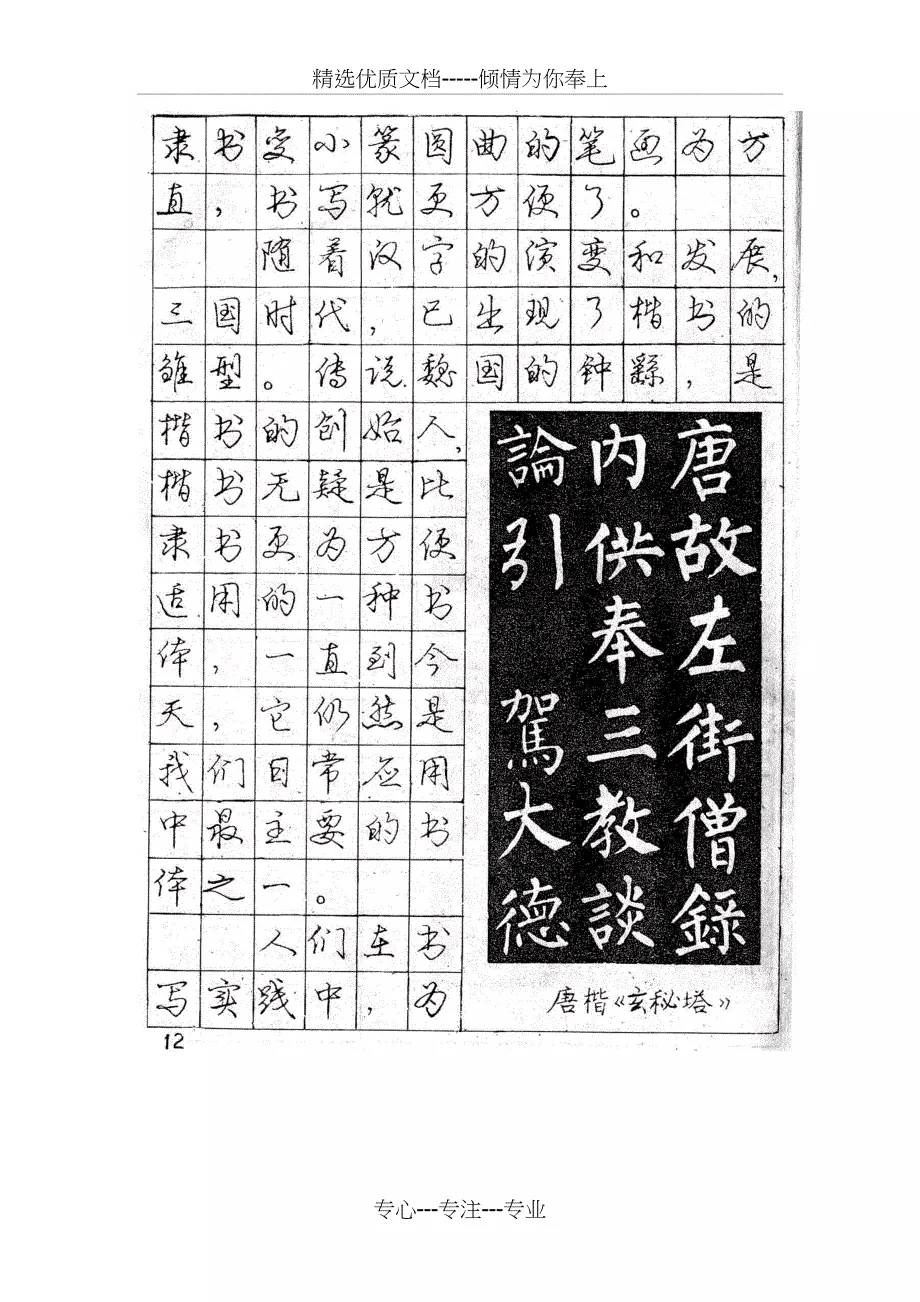 精选优质文档-----倾情为你奉上
隶书变小篆圆曲的笔画为方
直，书写就更方便了。
随着汉字的演变和发展，
三国时代，已出现了楷书的
雏型。传说魏国的钟繇，是
楷书的创始人，
楷书无疑是比
隶书更为方便
适用的一种书
体，一直到今
天，它仍然是
我们日常应用
中最主要的书
体之一。
人们在书
写实践中，为
唐故左街僧錄
内供奉三教談
論引 駕大德
唐楷《玄秘塔》
12
专心---专注---专业